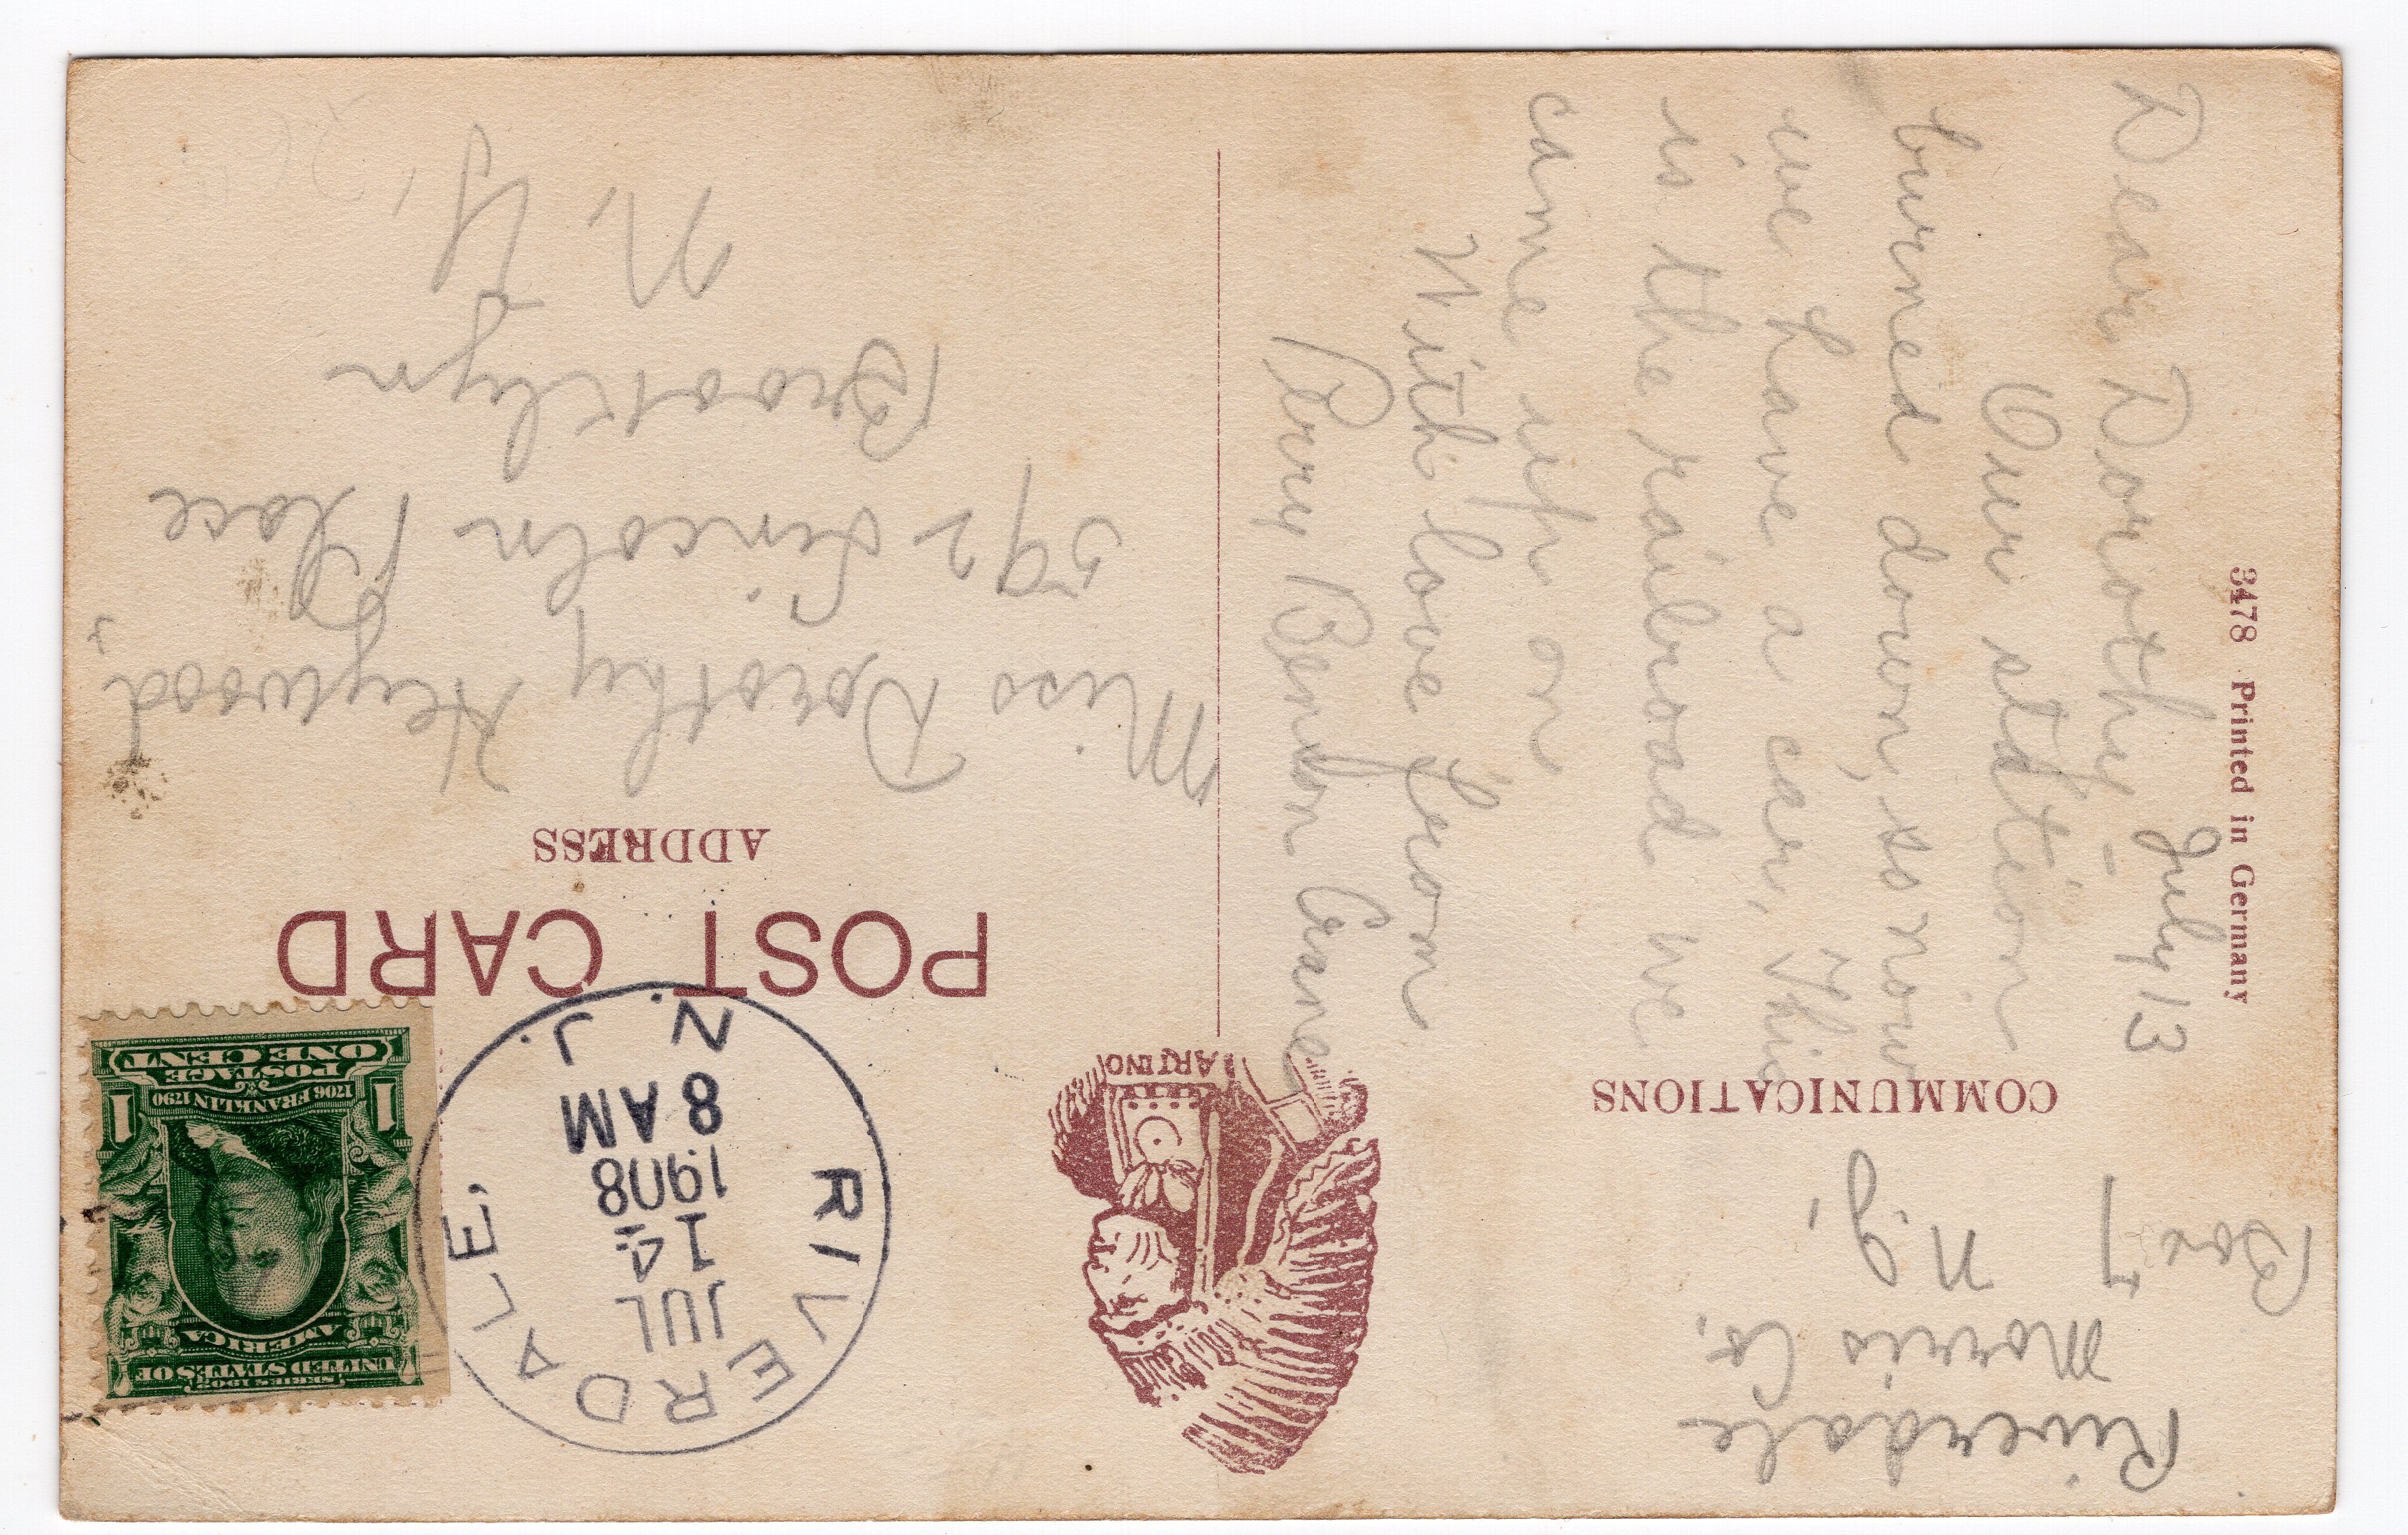 Riverdale
Morris Co.
N.J,
Box 7
COMMUNICATIONS
3478 Printed in Germany
July 13
Dear Dorothy:-
Our station
burned down, so now
we have a car, This
is the railroad we
came up on
With love from
Perry Benson Crane
ARTINO
RIVERDALE,
JUL
14
1908
8 AM
N. J.
SERIES 1902
UNITED STATES OF
AMERICA
1706 FRANKLIN 1790
1 POSTAGE 1
ONE CENT
POST CARD
ADDRESS
Miss Dorothy Heywood,
592 Lincoln Place
Brooklyn
N, Y,